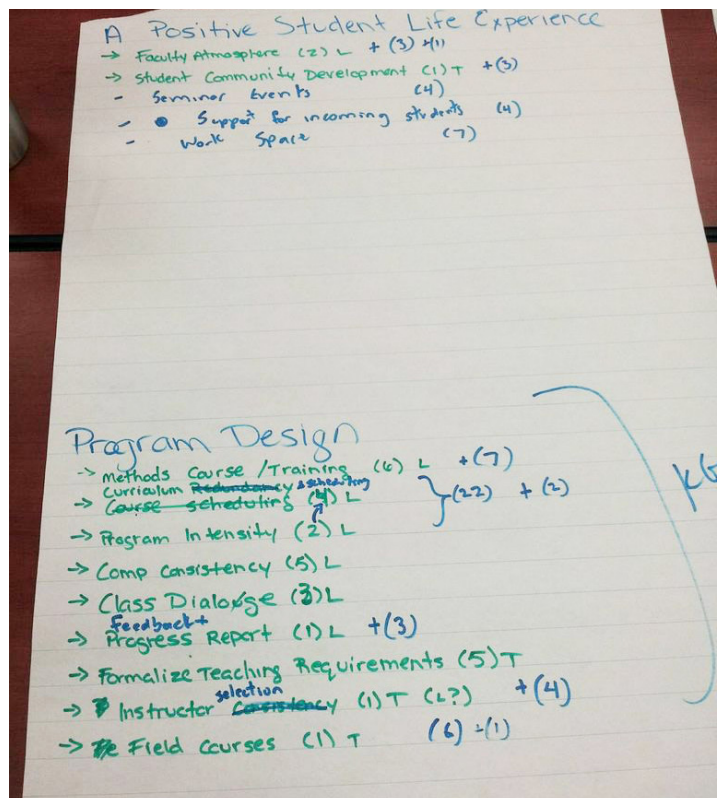 A Positive Student Life Experience
→ Faculty Atmosphere (2) L + (3) +(1)
→ Student Community Development (1) T +(3)
- Seminar Events (4)
- • Support for incoming students (4)
- Work Space (7)
Program Design
→ Methods Course /Training (6) L +(7)
Curriculum Redundancy & scheduling
→ Course scheduling (4) L (22) + (2)
→ Program Intensity (2) L
→ Comp Consistency (5) L
→ Class Dialogue (3) L
Feedback +
→ Progress Report (1) L +(3)
→ Formalize Teaching Requirements (5) T
selection
→ Instructor Consistency (1) T (L?) +(4)
→ Field Courses (1) T (6) -(1)